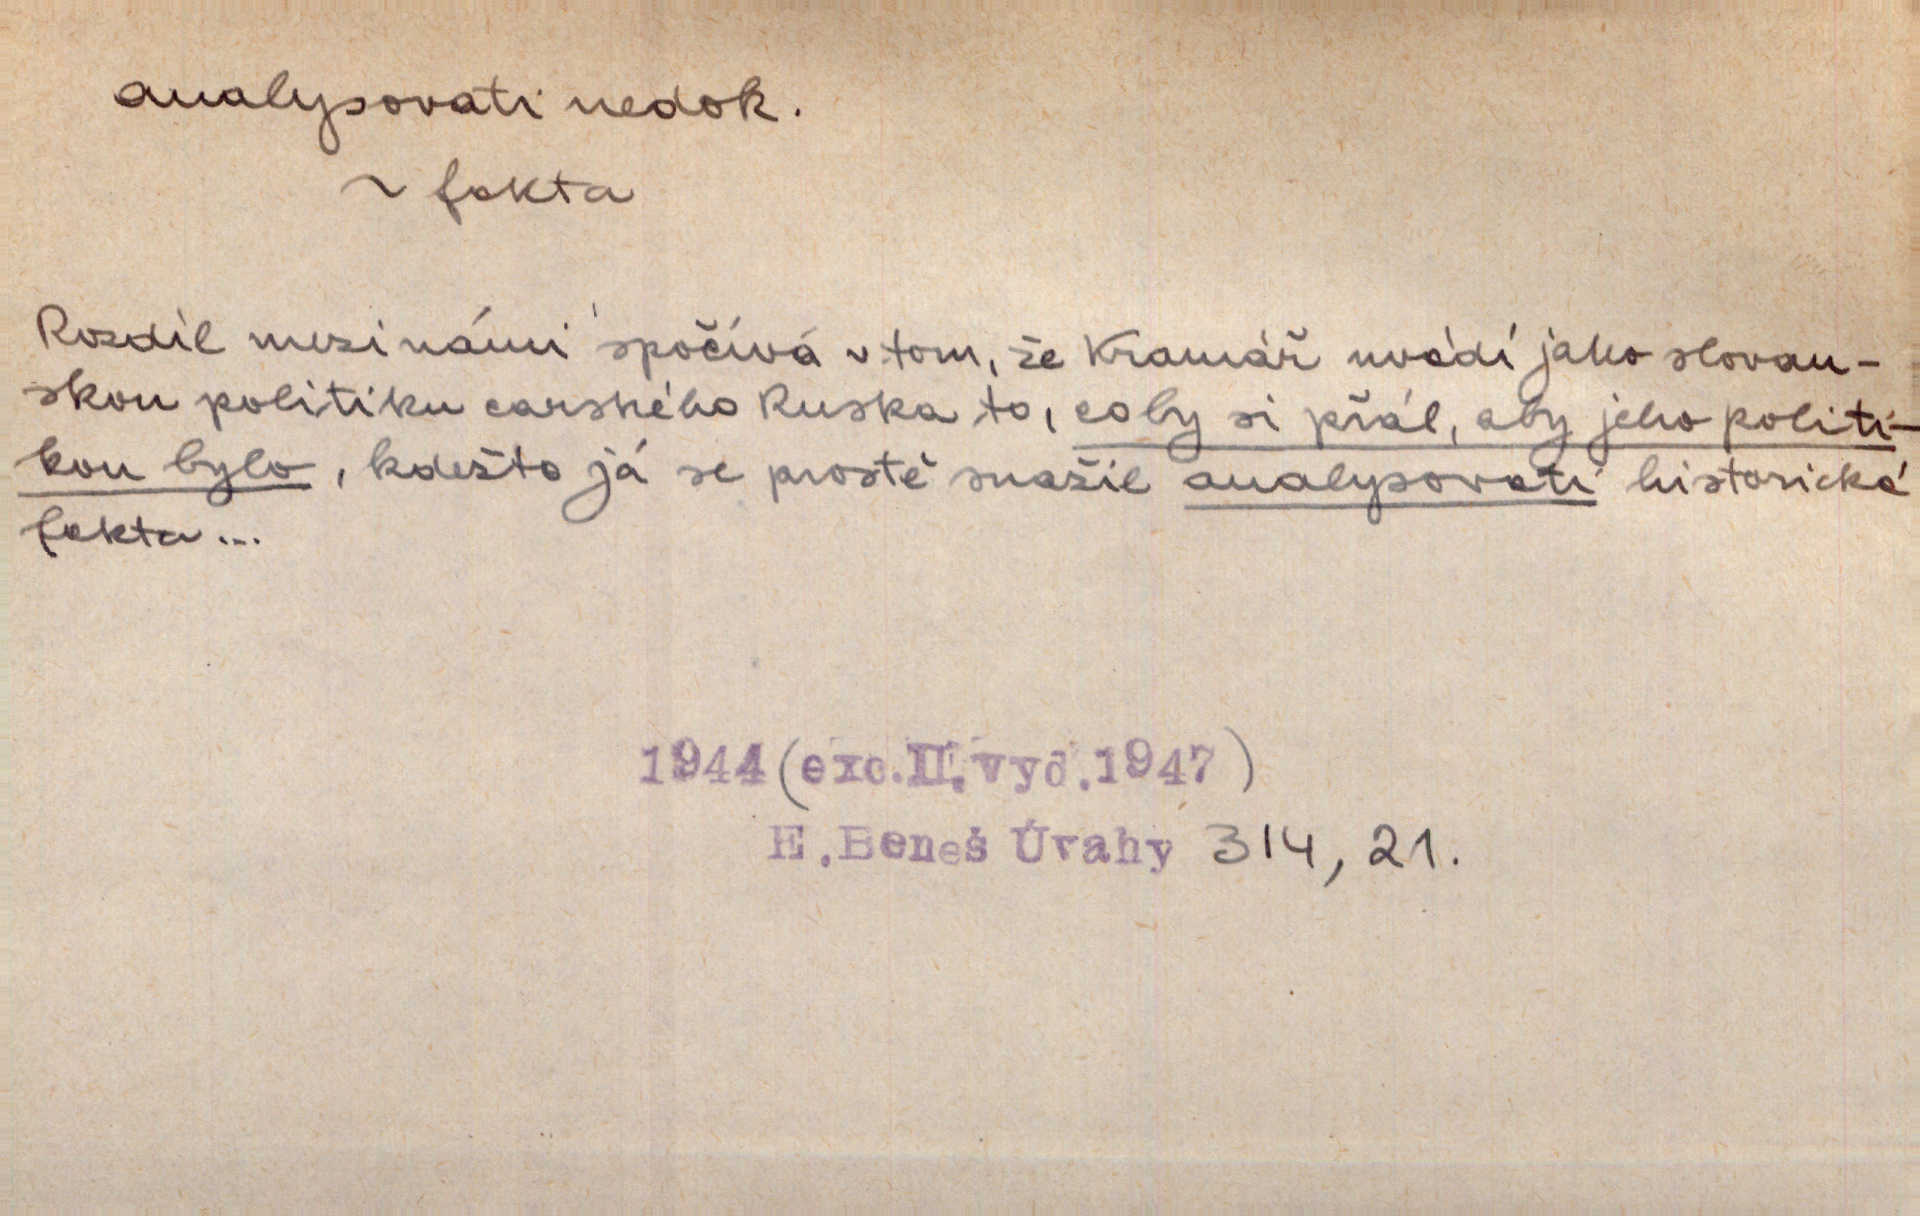 analysovati nedok.
~ fakta
Rozdíl mezi námi spočívá v tom, že Kramář uvádí jako slovan-
skou politiku carského Ruska to, co by si přál, aby jeho politi-
kou bylo, kdežto já se prostě snažil analysovati historická
fakta...
1944 (exc. II. vyd. 1947)
E. Beneš Úvahy 314, 21.